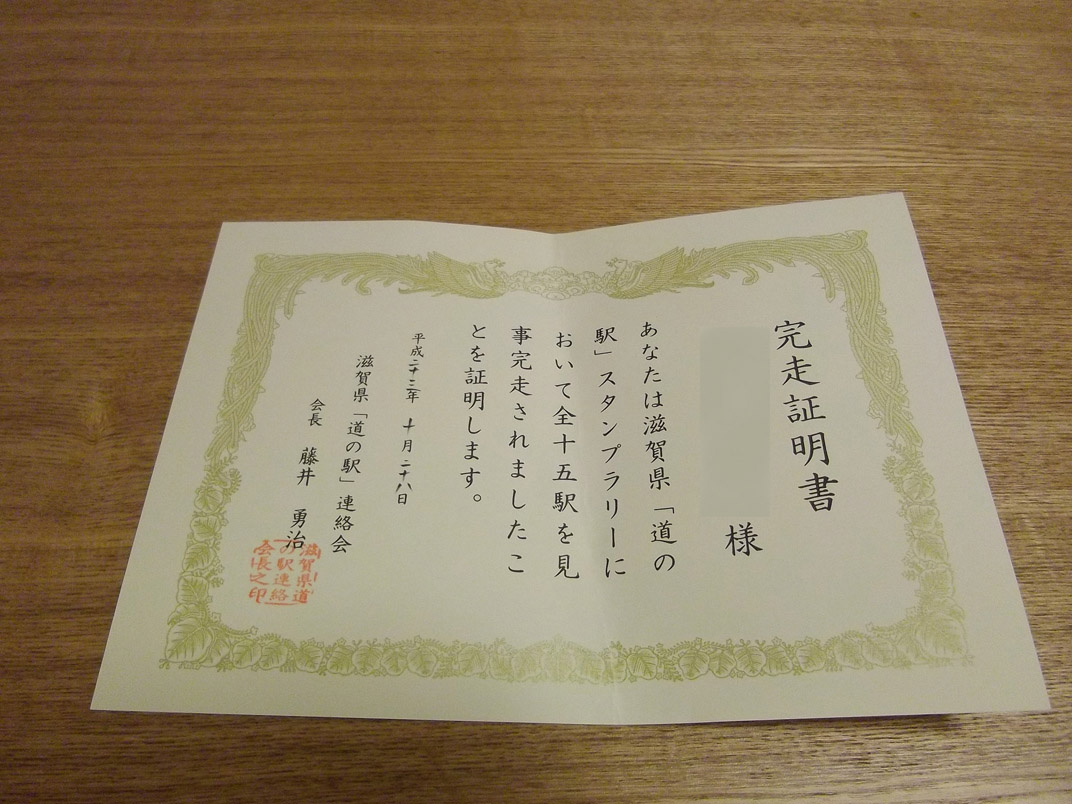 完走証明書
様
あなたは滋賀県「道の
駅」スタンプラリーに
おいて全十五駅を見
事完走されましたこ
とを証明します。
平成二十三年 十月二十八日
滋賀県「道の駅」連絡会
会長 藤井 勇治
滋賀県道
の駅連絡
会長之印